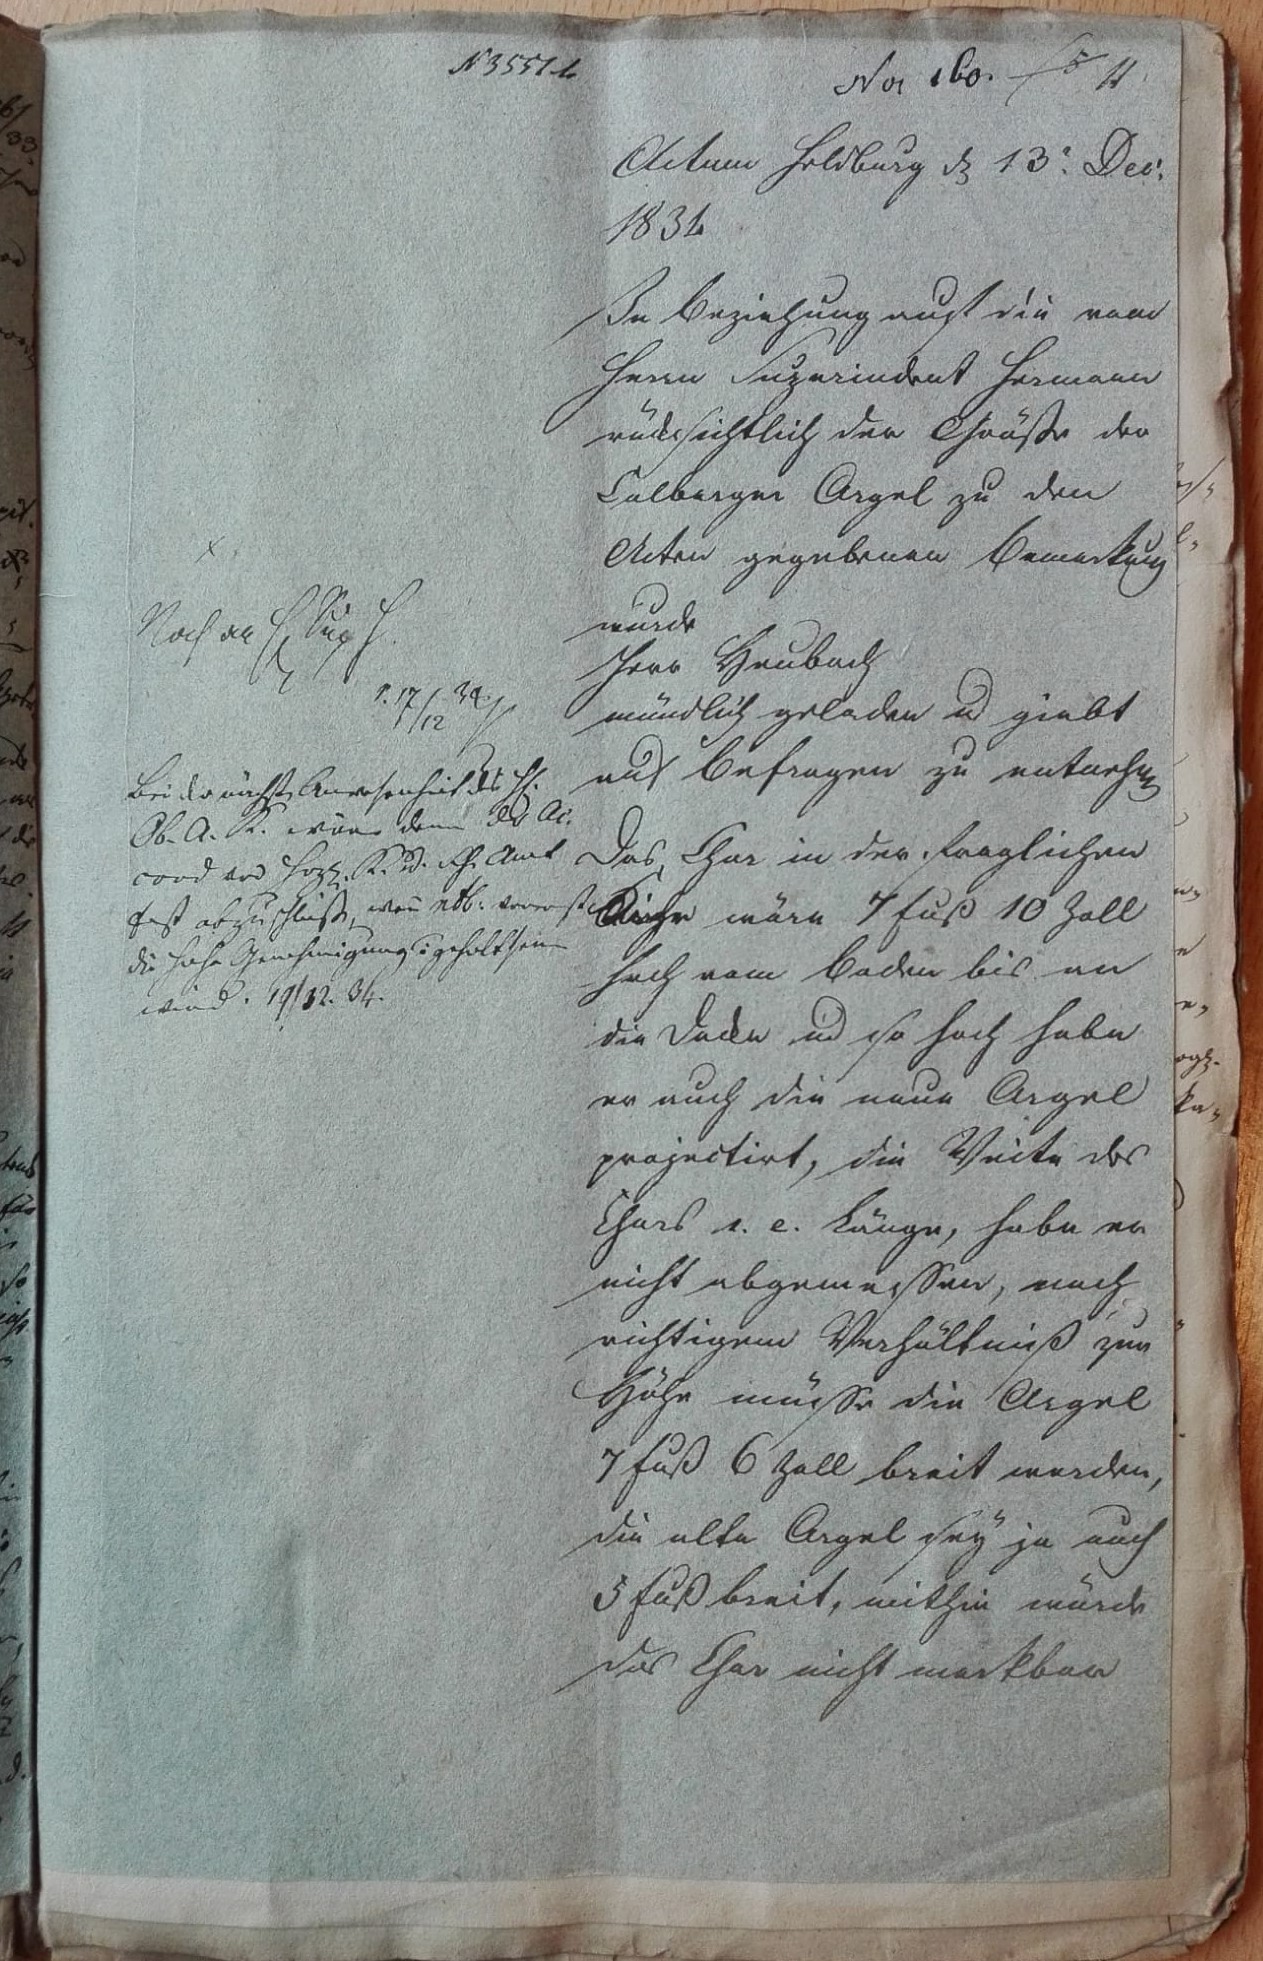 N 3551.
No 160.
11
Actum Heldburg d 13t Dec:
1834
In Beziehung auf die vom
Herrn Superindent Hermann
rücksichtlich der Größe der
Colberger Orgel zu den
Acten gegebenen Bemerkung
wurde
Herr Heubach
mündlich geladen u giebt
auf Befragen zu entnehmen
Das Chor in der fraglichen
Kirche wäre 7 Fuß 10 Zoll
hoch vom Boden bis an
die Decke u so hoch habe
er auch die neue Orgel
projectirt, die Weite des
Chors i. e. Länge, habe er
nicht abgemessen, nach
richtigem Verhältniß zur
Höhe müsse die Orgel
7 Fuß 6 Zoll breit werden,
die alte Orgel sey ja auch
5 Fuß breit, mithin würde
das Chor nicht merkbar
Noch an H Sup H.
17/12 34
Bei der nächst. Anwesenheit des H.
Ob. A. K. wäre denn der Ac-
cord vor Herz. K. u. Sch. Amt
fest abzuschließen, wenn
die hohe Genehmigung geholt sein
wird. 19/12. 34.